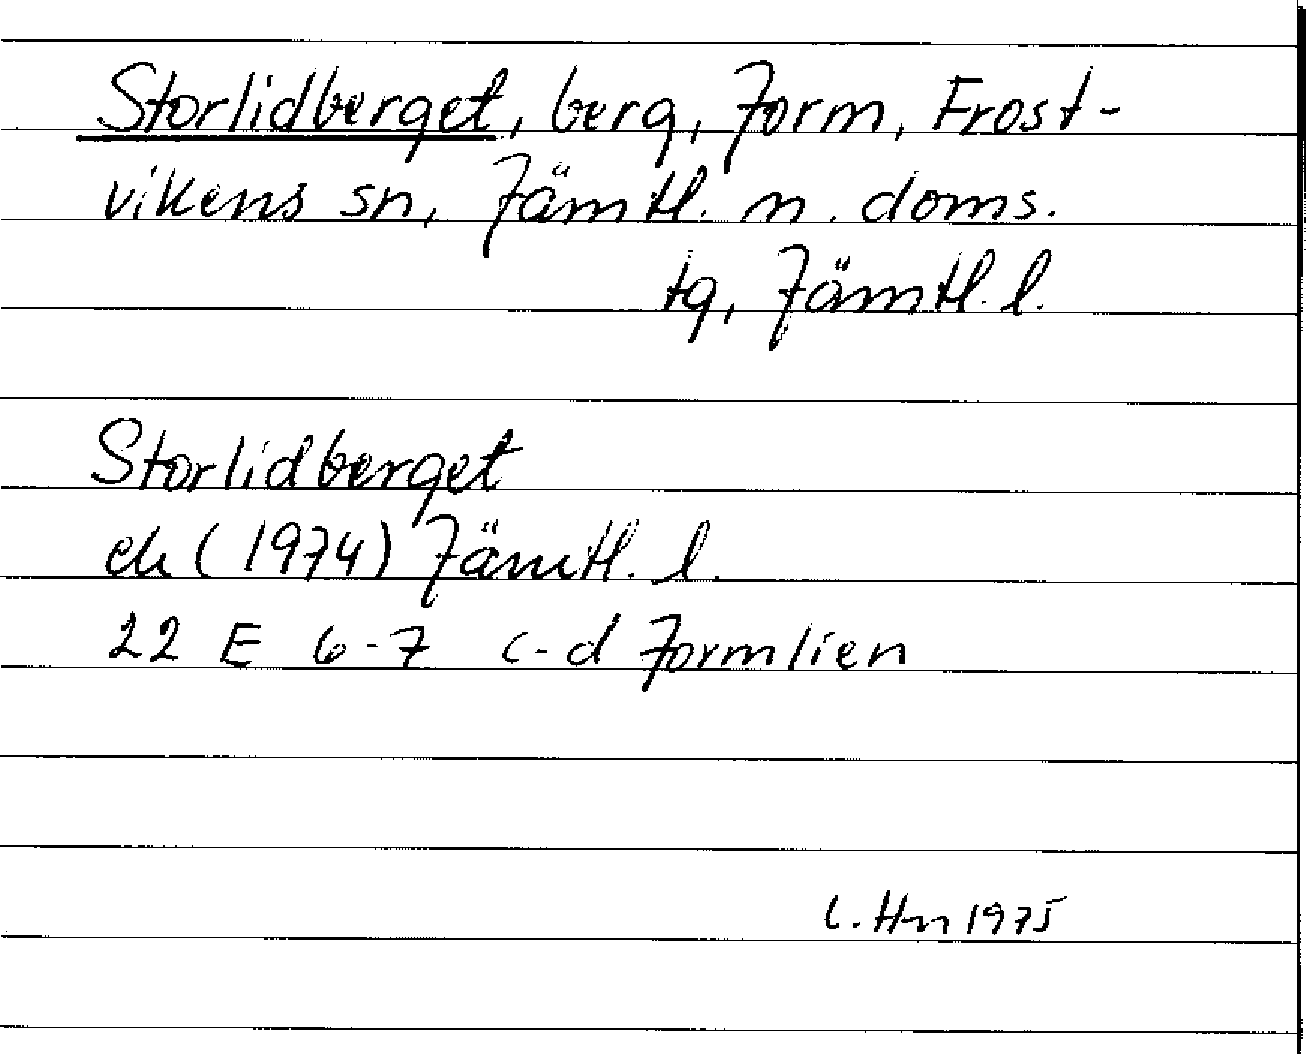 Storlidberget, berg, Jorm, Frost-
vikens sn, Jämtl. n. doms.
tg, Jämtl. l.
Storlidberget
ek (1974) Jämtl. l.
22 E 6-7 c-d Jormlien
C. Hn 1975